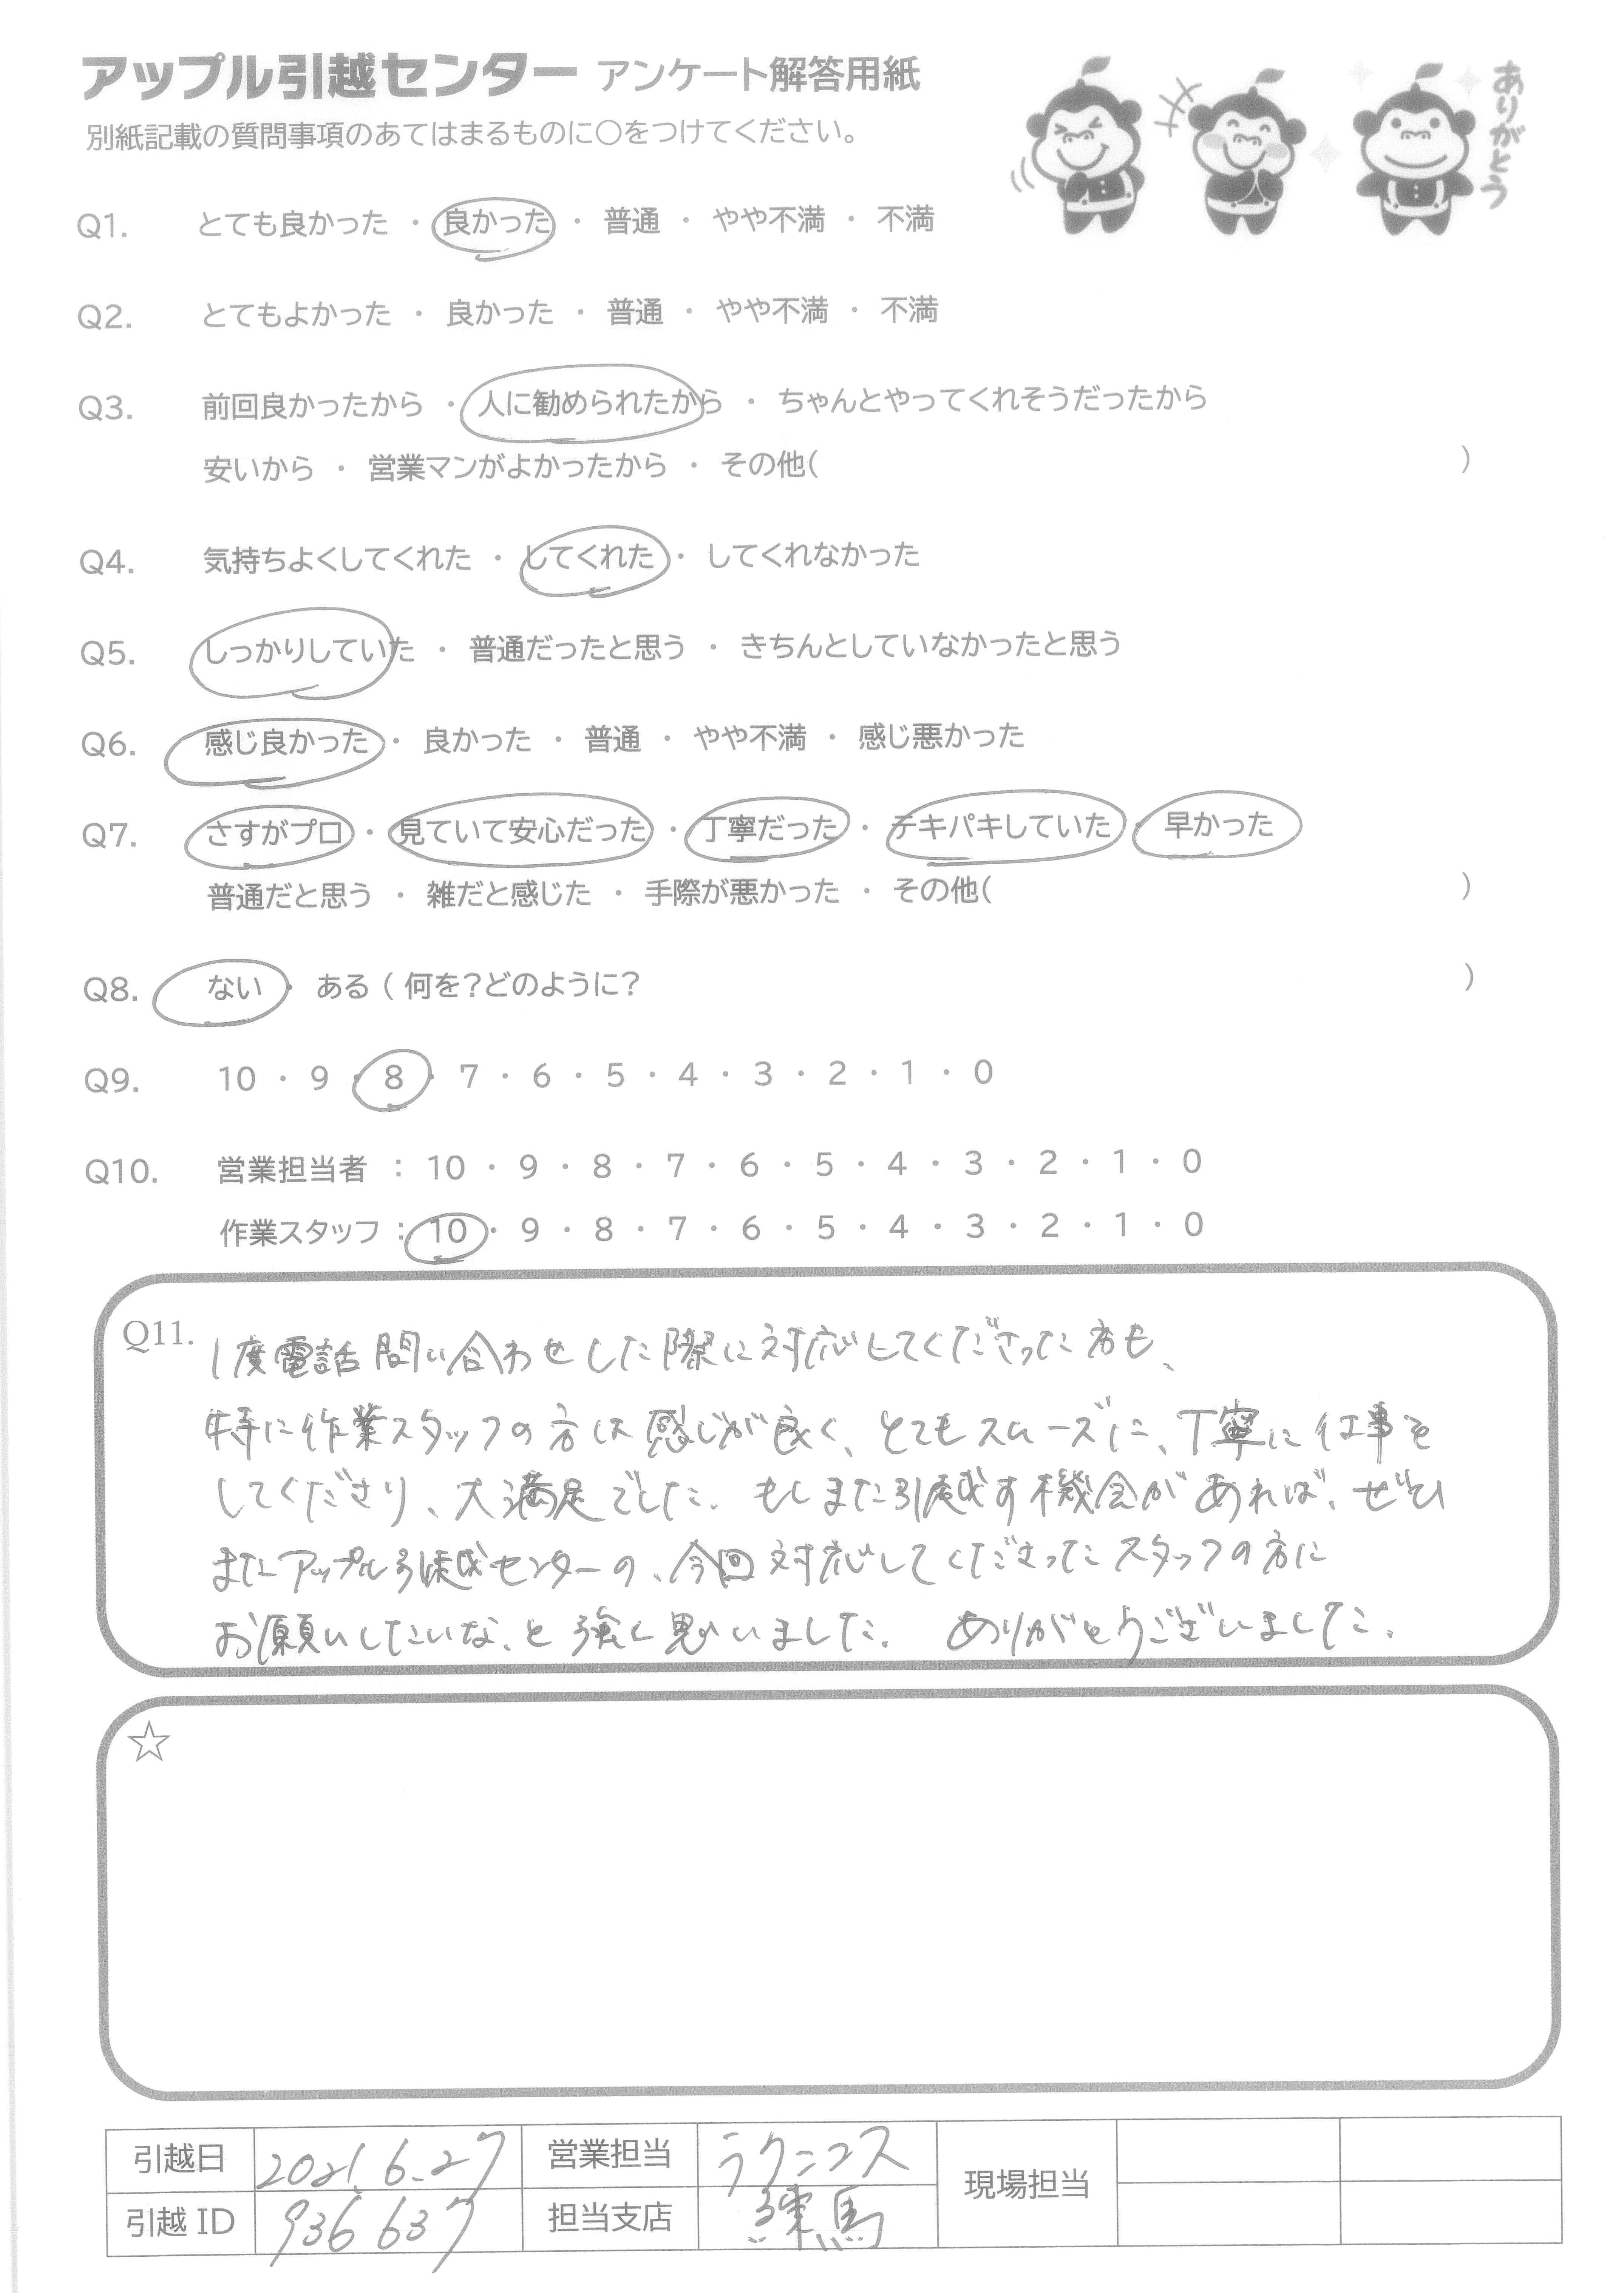 アップル引越センター アンケート解答用紙
別紙記載の質問事項のあてはまるものに〇をつけてください。
ありがとう
Q1. とても良かった ・ 良かった ・ 普通 ・ やや不満 ・ 不満
Q2. とてもよかった ・ 良かった ・ 普通 ・ やや不満 ・ 不満
Q3. 前回良かったから ・ 人に勧められたから ・ ちゃんとやってくれそうだったから
安いから ・ 営業マンがよかったから ・ その他( )
Q4. 気持ちよくしてくれた ・ してくれた ・ してくれなかった
Q5. しっかりしていた ・ 普通だったと思う ・ きちんとしていなかったと思う
Q6. 感じ良かった ・ 良かった ・ 普通 ・ やや不満 ・ 感じ悪かった
Q7. さすがプロ ・ 見ていて安心だった ・ 丁寧だった ・ テキパキしていた ・ 早かった
普通だと思う ・ 雑だと感じた ・ 手際が悪かった ・ その他( )
Q8. ない ・ ある ( 何を?どのように? )
Q9. 10 ・ 9 ・ 8 ・ 7 ・ 6 ・ 5 ・ 4 ・ 3 ・ 2 ・ 1 ・ 0
Q10. 営業担当者 : 10 ・ 9 ・ 8 ・ 7 ・ 6 ・ 5 ・ 4 ・ 3 ・ 2 ・ 1 ・ 0
作業スタッフ : 10 ・ 9 ・ 8 ・ 7 ・ 6 ・ 5 ・ 4 ・ 3 ・ 2 ・ 1 ・ 0
Q11. 1度電話問い合わせした際に対応してくださった方も、
特に作業スタッフの方は感じが良く、とてもスムーズに、丁寧に仕事を
してくださり、大満足でした。もしまた引越す機会があれば、ぜひ
またアップル引越センターの、今回対応してくださったスタッフの方に
お願いしたいな、と強く思いました。 ありがとうございました。
☆
引越日 2021.6.27 営業担当 ラクニコス 現場担当
引越 ID 936637 担当支店 練馬